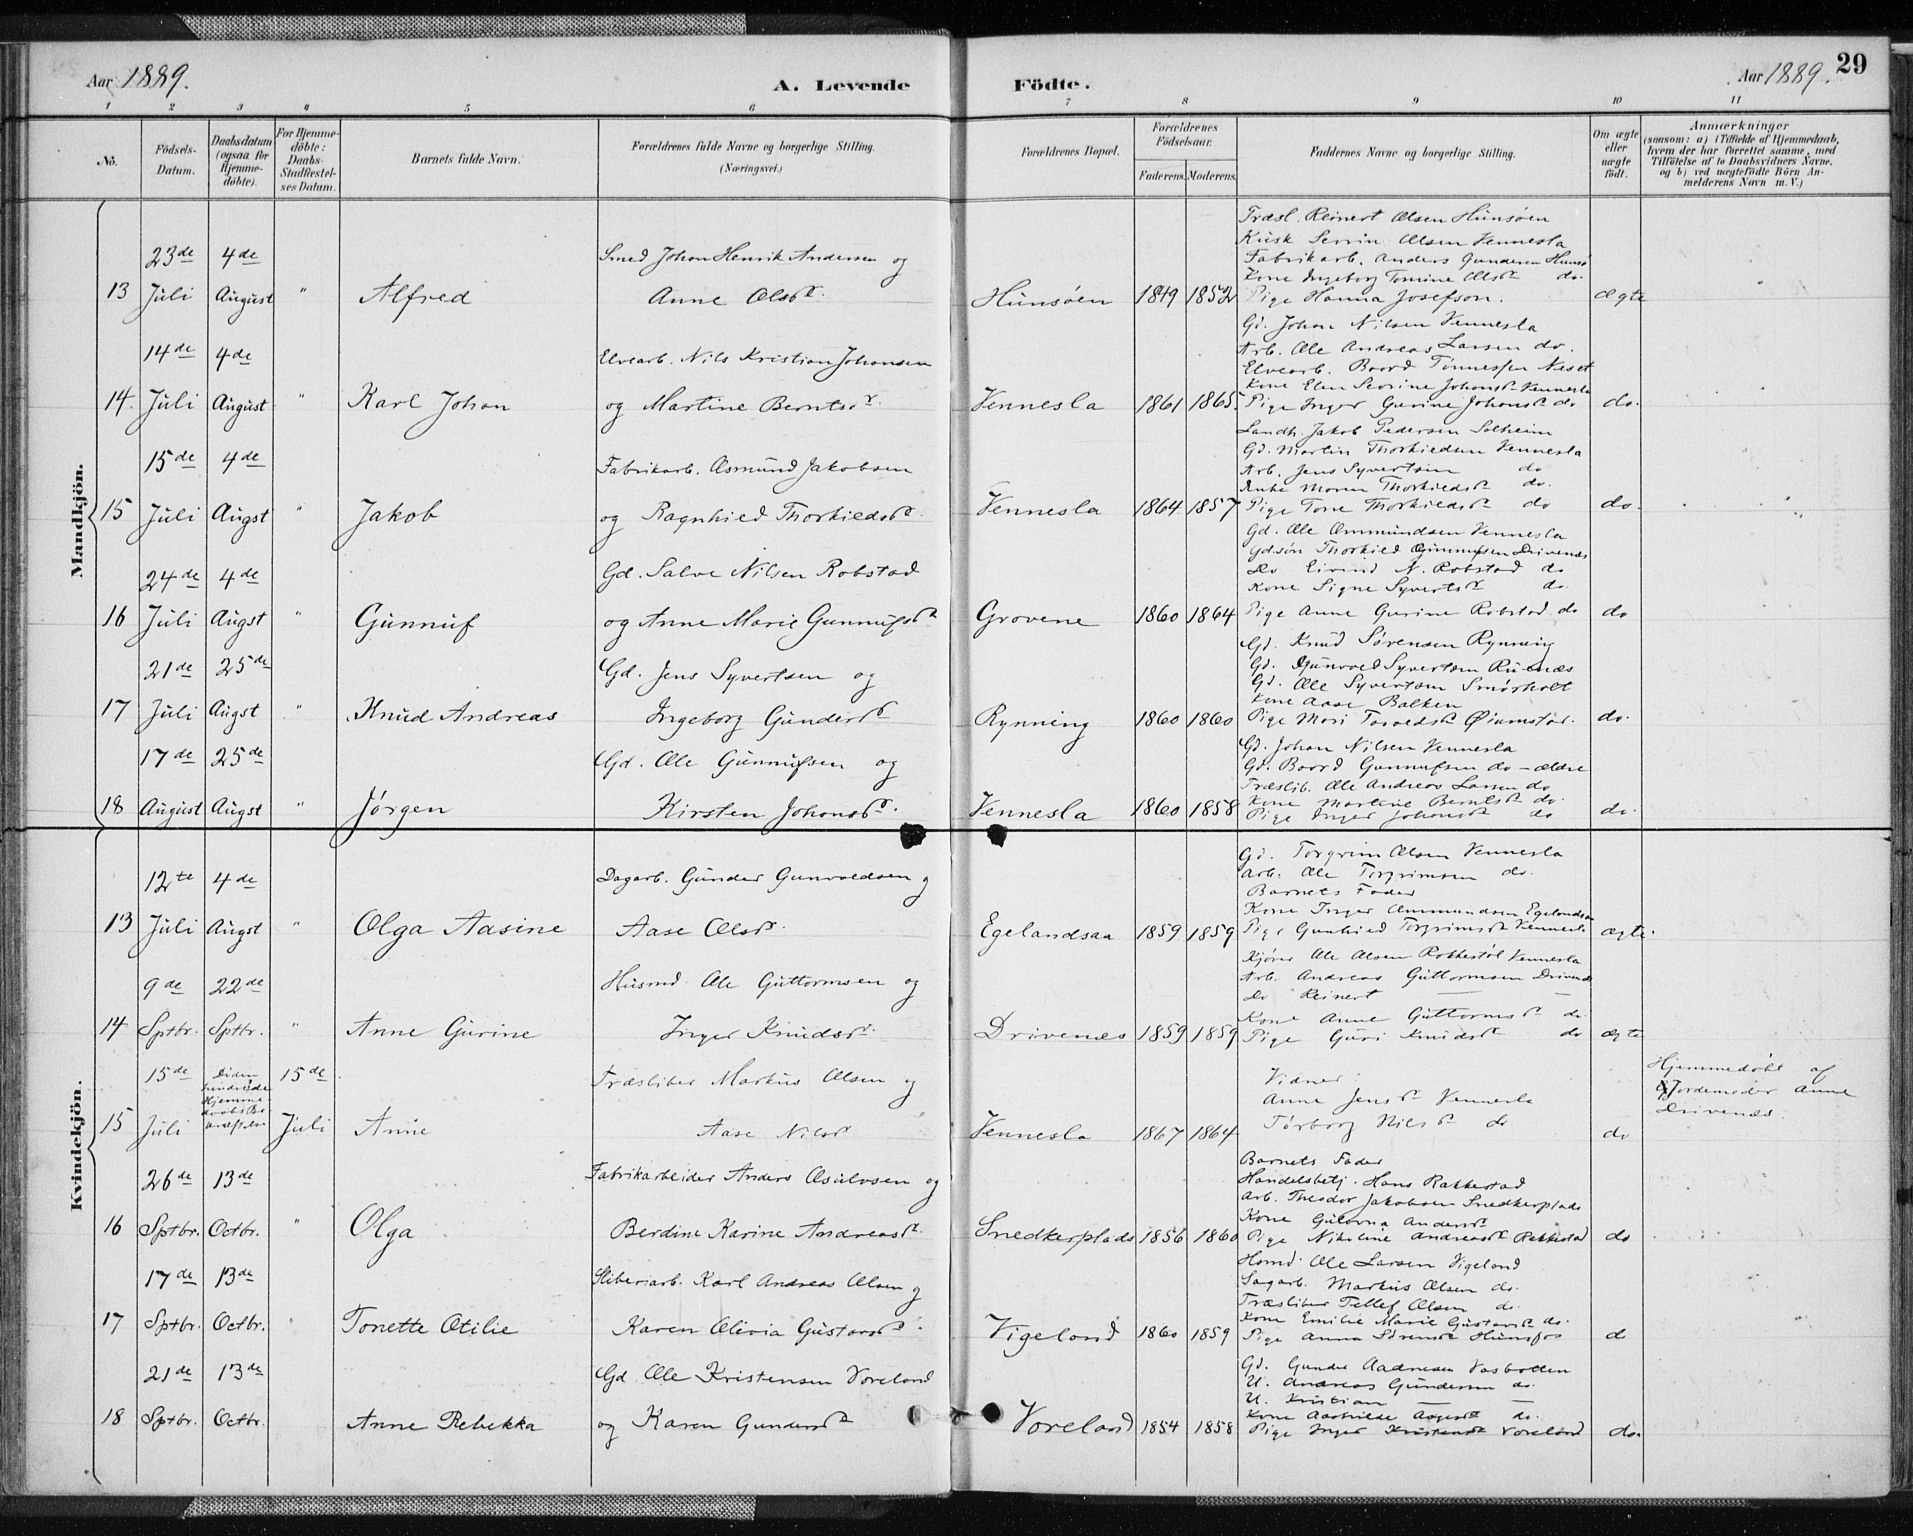 Aar 1889.
A. Levende
Födte.
Aar 1889.
29
1 2 3 4 5 6 7 8 9 10 11
No.
Födsels-Datum.
Daabsdatum (ogsaa for Hjemme-döbte).
For Hjemme-döbte: Daabs-Stadfæstel-ses Datum.
Barnets fulde Navn.
Forældrenes fulde Navne og borgerlige Stilling.
(Næringsvei.)
Forældrenes Bopæl.
Forældrenes Födselsaar.
Faderens. Moderens.
Faddernes Navne og borgerlige Stilling.
Om ægte eller uægte födt.
Anmærkninger
(saasom: a) i Tilfælde af Hjemmedaab, hvem der har forrettet samme, med Tilföielse af to Daabsvidners Navne, og b) ved uægtefödte Börn An-melderens Navn m. V.)
Mandkjön.
13 23de Juli 4de August " Alfred
Smed Johan Henrik Andersen og
Anne Olsdr.
Hunsøen 1849 1852
Træsl. Reinert Olsen Hunsøen
Kusk Olsen Vennesla
Fabrikarb. Anders Gundersen Hunsø
Kone Ingeborg Tomine Olsdr do.
Pige Hanna Josefson.
ægte
14. 14de Juli 4de August " Karl Johan
Elvearb. Nils Kristian Johansen
og Martine Berntsdr.
Vennesla 1861 1865.
Gd. Johan Nilsen Vennesla
Arb. Ole Andreas Larsen do.
Elvearb. Boord Tønnessen Neset
Kone Elen Johansdr Vennesla
Pige Inger Gurine Johansdr do
do.
15 15de Juli 4de Augst " Jakob
Fabrikarb. Asmund Jakobsen
og Ragnhild Thorkieldsdr.
Vennesla 1864 1857
Landh. Jakob Pedersen Solheim
Gd. Martin Thorkildsen Vennesla
Arb. Jens Syvertsen do
Enke Thorkildsdr do.
Pige Tone Thorkildsdr do
do.
16 24de Juli 4de Augst " Gunnuf
Gd. Salve Nilsen Robstad
og Anne Marie Gunnufsdr
Grovene 1860 1864
Gd. Ole Ommundsen Vennesla
Gdsøn Thorkild Gunnufsen Drivenæs
Do Eivind N. Robstad do
Kone Signe Syvertsdr do.
Pige Anne Gurine Robstad do
do
17 21de Juli 25de Augst " Knud Andreas
Gd. Jens Syvertsen og
Ingeborg Gundersdr
Rynning 1860 1860
Gd. Knud Sørensen Rynning
Gd. Gunvald Syvertsen
Gd. Ole Syvertsen Smørholt
Kone Aase Balken
Pige Mari
do.
18 17de August 25de Augst " Jørgen
Gd. Ole Gunnufsen og
Kirsten Johansdr.
Vennesla 1860 1858
Gd. Johan Nilsen Vennesla
Gd. Boord Gunnufsen do - ældre
Træslib. Ole Andreas Larsen do
Kone Martine Berntsdr do.
Pige Inger Johansdr do
do.
Kvindekjön.
13 12te Juli 4de Augst " Olga Aasine
Dagarb. Gunder Gunvaldsen og
Aase Olsdr.
Egelandsaa 1859 1859
Gd. Torgrim Olsen Vennesla
Arb. Ole Torgrimsen do.
Barnets Fader
Kone Inger Ommundsen Egelandsaa
Pige Gunhild Torgrimsdr Vennesla
ægte.
14 9de Sptbr. 22de Sptbr. " Anne Gurine
Husmd. Ole Guttormsen og
Inger Knudsdr.
Drivenæs 1859 1859
Ole Olsen Vennesla
Arb. Andreas Guttormsen Drivenæs
Do Reinert — —
Kone Anne Guttormsdr do.
Pige Guri Knudsdr do
ægte
15 15de Juli Hjemme 15de Juli Anne
Træsliber Markus Olsen og
Aase Nilsdr
Vennesla 1867 1864
Vidner
Anne Jensdr Vennesla
Torborg Nilsdr do
do
Hjemmedøbt af
Gjordemoder Anne
Drivenæs.
16 26de Sptbr. 13de Octbr. " Olga
Fabrikarbeider Anders Osulvsen og
Berdine Karine Andreasdr.
Snedkerplads 1856 1860
Barnets Fader
Handelsbetj. Hans Rakkestad
Arb. Theodor Jakobsen Snedkerplads
Kone Andersdr
Pige Nikoline Andreasdr Rakkestad
do
17 17de Sptbr. 13de Octbr. " Tonette Otilie
Sliberiarb. Karl Andreas Olsen og
Karen Olivia Gustavsdr.
Vigeland 1860 1859
Hsmd. Ole Larsen Vigeland
Sagarb. Markus Olsen do.
Træsliber Tellef Olsen do.
Kone Emilie Marie Gustavsdr do.
Pige Anna Hunsfos
do
18 21de Sptbr. 13de Octbr. Anne Rebekka
Gd. Ole Kristensen Voreland
og Karen Gundersdr
Voreland 1854 1858
Gd. Gunder Aadnesen Vasbotten
U. Andreas Gundersen do.
U. Kristian — —
Kone Aasdr do.
Pige Inger Kristensdr Voreland
do.